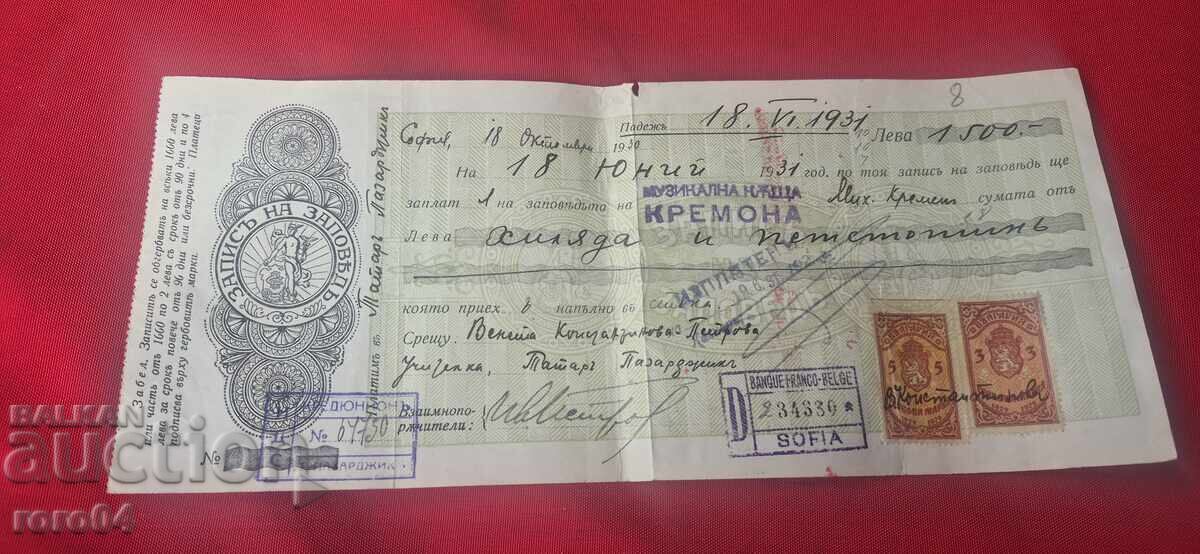 8
Забел. Записитѣ се обгербватъ на всѣки 1660 лева
или часть отъ 1660 по 2 лева съ срокъ отъ 90 дни и по 4
лева за срокъ повече отъ 90 дни или безсрочни. Платецъ
подписва върху гербовитѣ марки.
ЗАПИСЪ НА ЗАПОВѢДЬ
Платимъ въ Татаръ Пазарджикъ
София, 18 Октомври 1930
Падежъ 18. VI. 1931
Лева 1500.-
На 18 Юний 1931 год. по тоя записъ на заповѣдь ще
заплат на заповѣдьта на
МУЗИКАЛНА КѪЩА
КРЕМОНА
сумата отъ
Лева хиляда и петстотинъ
която приех напълно въ
Срещу: Венета Константинова Петрова
Учителка, Татаръ Пазарджикъ
Взаимнопо-
рѫчители:
ИЗПЛАТЕН
№
№ 64730
ПАЗАРДЖИК
D
BANQUE FRANCO-BELGE
234330 *
SOFIA
БЪЛГАРИЯ
5 5
БЪЛГАРИЯ
3 3
BALKAN
auction
roro04